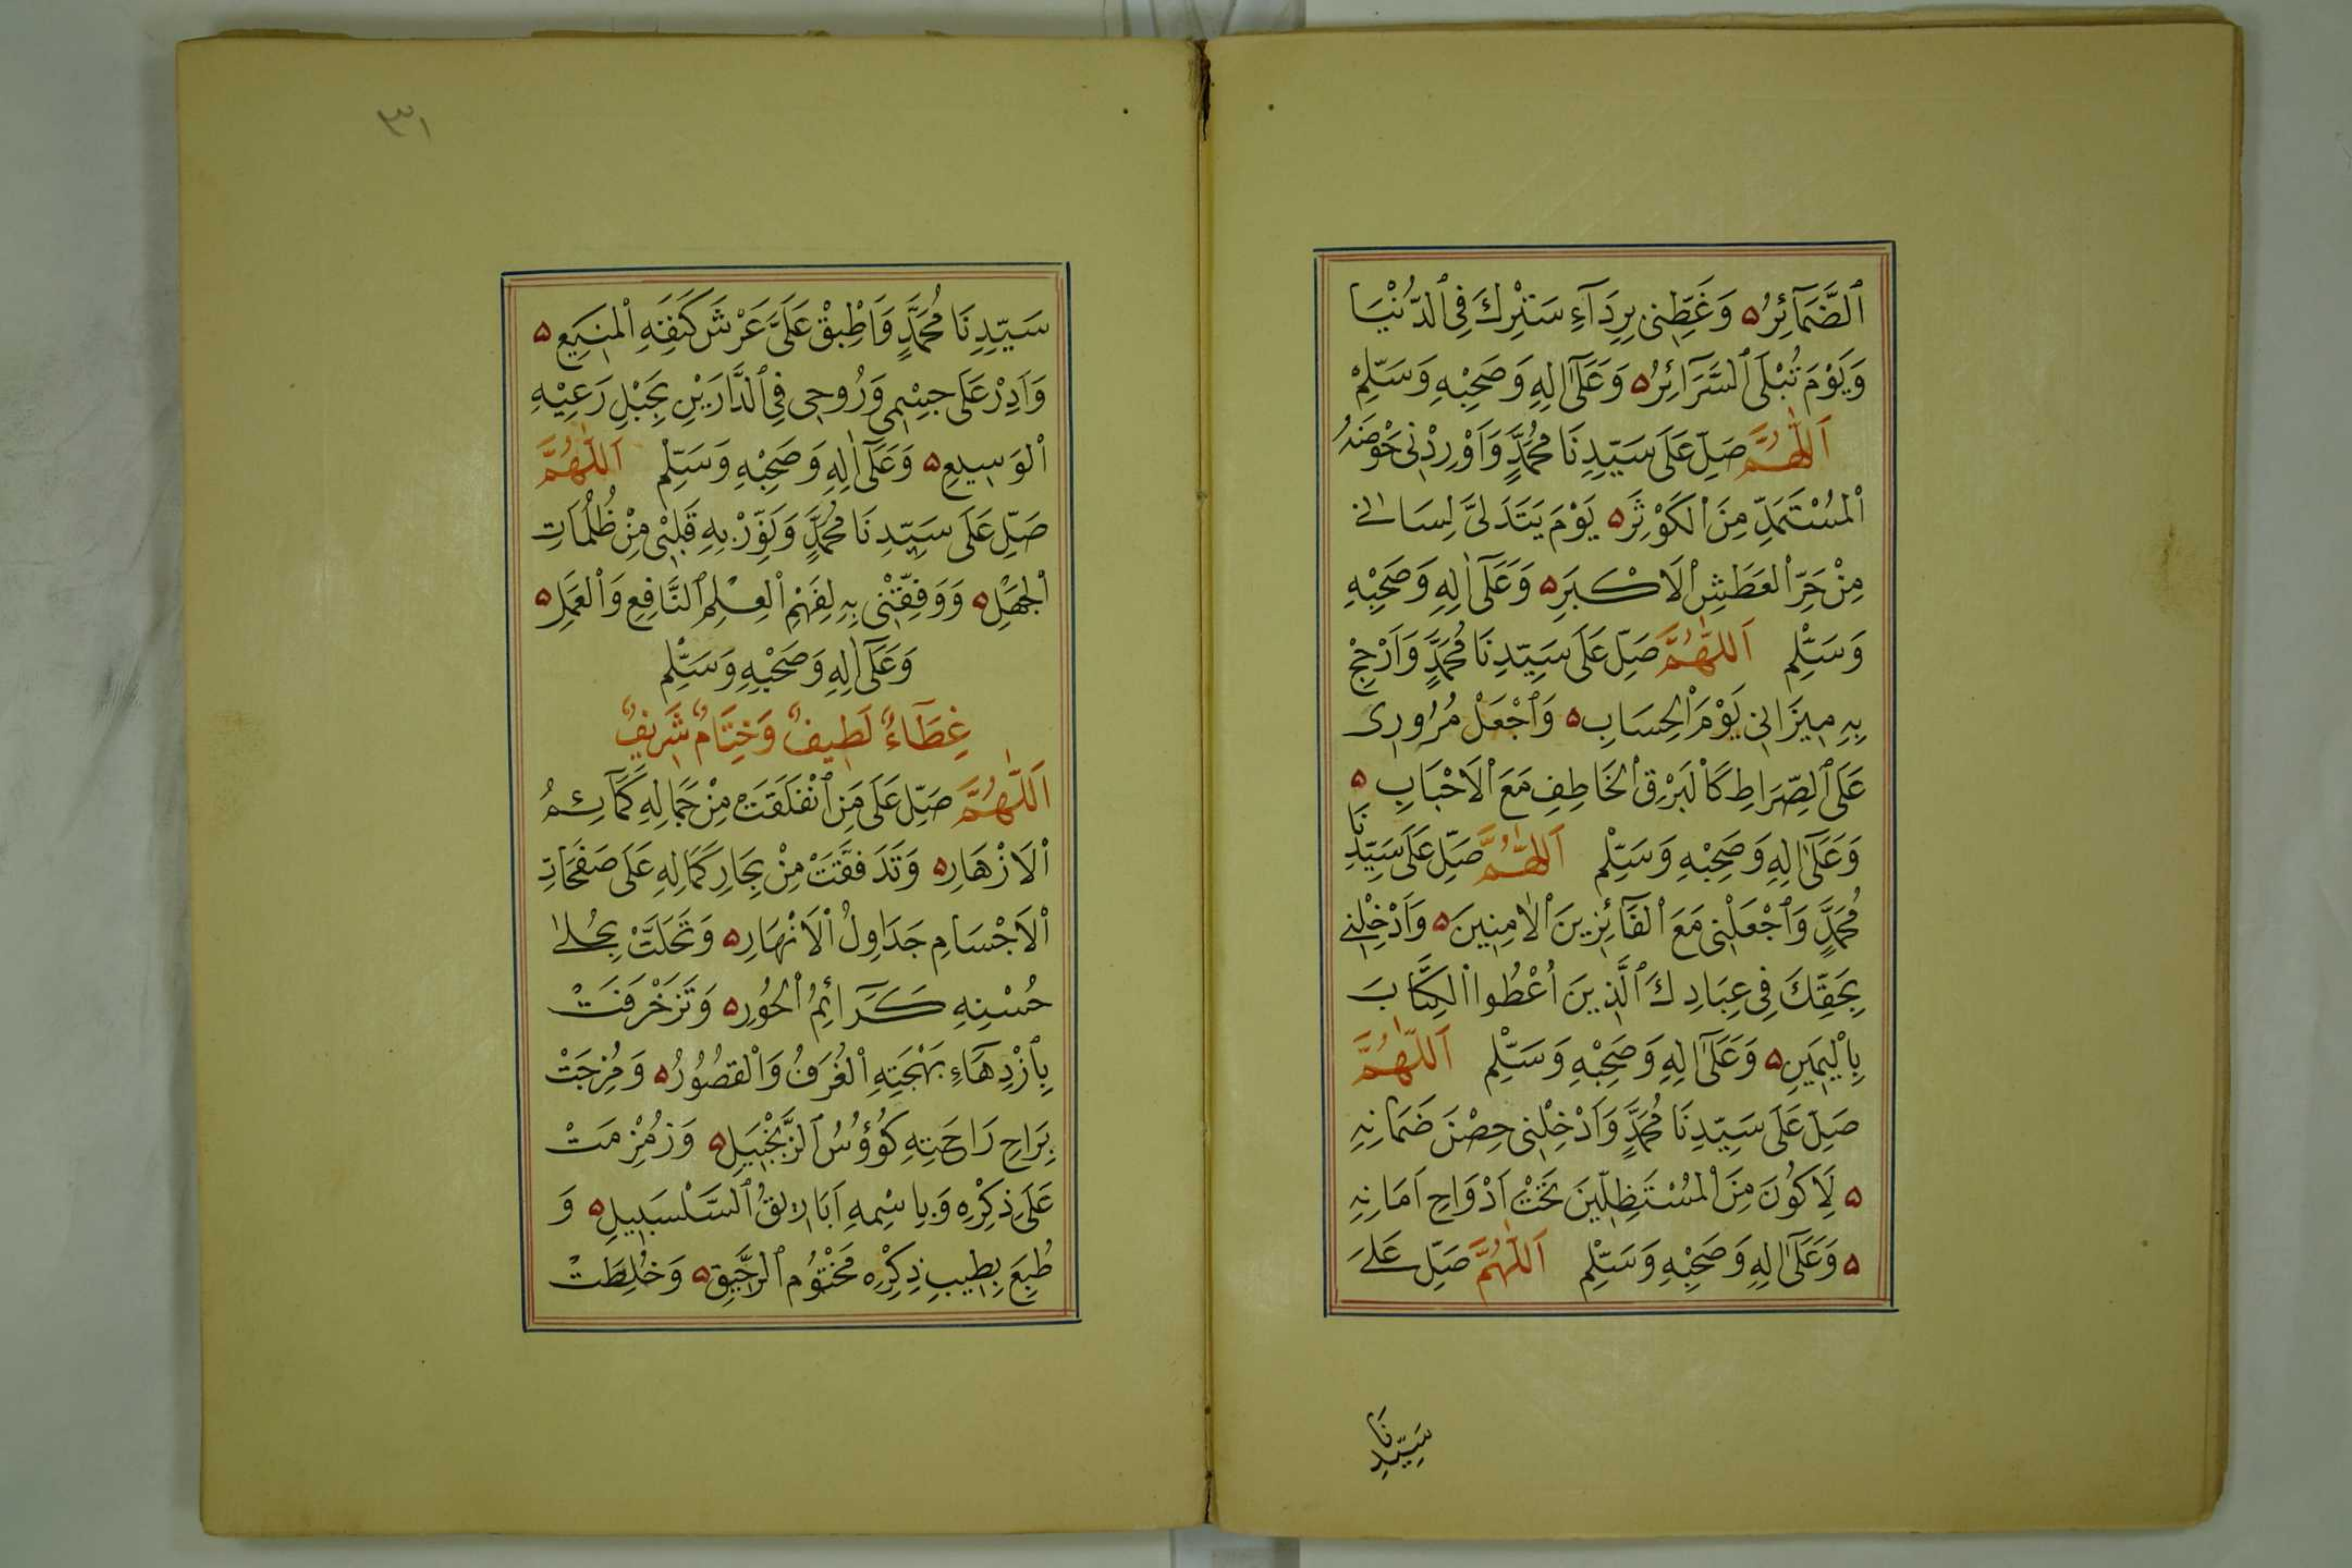 اَلضَّمَآئِرُ ۵ وَغَطِّنِى بِرِدَآءِ سَتْرِكَ فِى الدُّنْيَا
وَيَوْمَ تُبْلَى السَّرَآئِرُ ۵ وَعَلَىٓ اٰلِهِ وَصَحْبِهِ وَسَلِّمْ
اَللّٰهُمَّ صَلِّ عَلَى سَيِّدِنَا مُحَمَّدٍ وَاَوْرِدْنِى حَوْضَهُ
الْمُسْتَمَدِّ مِنَ الْكَوْثَرِ ۵ يَوْمَ يَتَدَلَّى لِسَانِى
مِنْ حَرِّ الْعَطَشِ الْاَكْبَرِ ۵ وَعَلَىٓ اٰلِهِ وَصَحْبِهِ
وَسَلِّمْ اَللّٰهُمَّ صَلِّ عَلَى سَيِّدِنَا مُحَمَّدٍ وَاَرْجِحْ
بِهِ مِيزَانِى يَوْمَ الْحِسَابِ ۵ وَاجْعَلْ مُرُورِى
عَلَى الصِّرَاطِ كَالْبَرْقِ الْخَاطِفِ مَعَ الْاَحْبَابِ ۵
وَعَلَىٓ اٰلِهِ وَصَحْبِهِ وَسَلِّمْ اَللّٰهُمَّ صَلِّ عَلَى سَيِّدِنَا
مُحَمَّدٍ وَاجْعَلْنِى مَعَ الْفَآئِزِينَ الْاٰمِنِينَ ۵ وَاَدْخِلْنِى
بِحَقِّكَ فِى عِبَادِكَ الَّذِينَ اُعْطُوا الْكِتَابَ
بِالْيَمِينِ ۵ وَعَلَىٓ اٰلِهِ وَصَحْبِهِ وَسَلِّمْ اَللّٰهُمَّ
صَلِّ عَلَى سَيِّدِنَا مُحَمَّدٍ وَاَدْخِلْنِى حِصْنَ ضَمَانِهِ
۵ لِاَكُونَ مِنَ الْمُسْتَظِلِّينَ تَحْتَ اَدْوَاحِ اَمَانِهِ
۵ وَعَلَىٓ اٰلِهِ وَصَحْبِهِ وَسَلِّمْ اَللّٰهُمَّ صَلِّ عَلَى
سَيِّدِنَا
٣١
سَيِّدِنَا مُحَمَّدٍ وَاَطْبِقْ عَلَىَّ عَرْشَ كَنَفِهِ الْمَنِيعِ ۵
وَاَدِرْ عَلَى جِسْمِى وَرُوحِى فِى الدَّارَيْنِ بِحَبْلِ رَعْيِهِ
الْوَسِيعِ ۵ وَعَلَىٓ اٰلِهِ وَصَحْبِهِ وَسَلِّمْ اَللّٰهُمَّ
صَلِّ عَلَى سَيِّدِنَا مُحَمَّدٍ وَنَوِّرْ بِهِ قَلْبِى مِنْ ظُلُمَاتِ
الْجَهْلِ ۵ وَوَفِّقْنِى بِهِ لِفَهْمِ الْعِلْمِ النَّافِعِ وَالْعَمَلِ ۵
وَعَلَىٓ اٰلِهِ وَصَحْبِهِ وَسَلِّمْ
غِطَآءٌ لَطِيفٌ وَخِتَامٌ شَرِيفٌ
اَللّٰهُمَّ صَلِّ عَلَى مَنِ انْفَلَقَتْ مِنْ جَمَالِهِ كَمَآئِمُ
الْاَزْهَارِ ۵ وَتَدَفَّقَتْ مِنْ بِحَارِ كَمَالِهِ عَلَى صَفَحَاتِ
الْاَجْسَامِ جَدَاوِلُ الْاَنْهَارِ ۵ وَتَحَلَّتْ بِحُلٰى
حُسْنِهِ كَرَآئِمُ الْحُورِ ۵ وَتَزَخْرَفَتْ
بِازْدِهَآءِ بَهْجَتِهِ الْغُرَفُ وَالْقُصُورُ ۵ وَمُزِجَتْ
بِرَاحِ رَاحَتِهِ كُؤُوسُ الزَّنْجَبِيلِ ۵ وَزُمْزِمَتْ
عَلَى ذِكْرِهِ وَبِاسْمِهِ اَبَارِيقُ السَّلْسَبِيلِ ۵ وَ
طُبِعَ بِطِيبِ ذِكْرِهِ مَخْتُومُ الرَّحِيقِ ۵ وَخُلِطَتْ